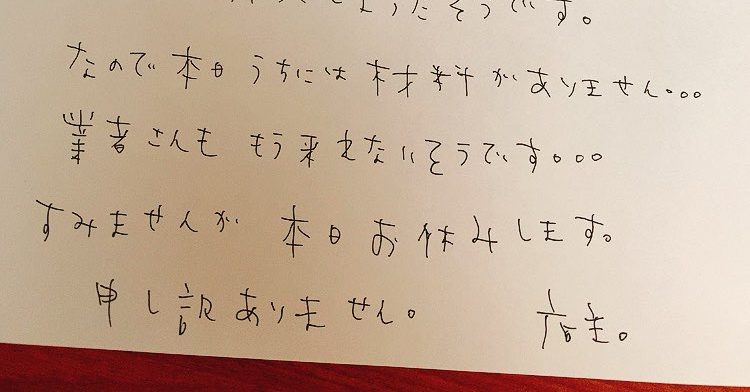 そうです。
なので 本日 うちには 材料が ありません。。。
業者さんも もう来れないそうです。。。
すみませんが 本日お休みします。
申し訳ありません。 店主。